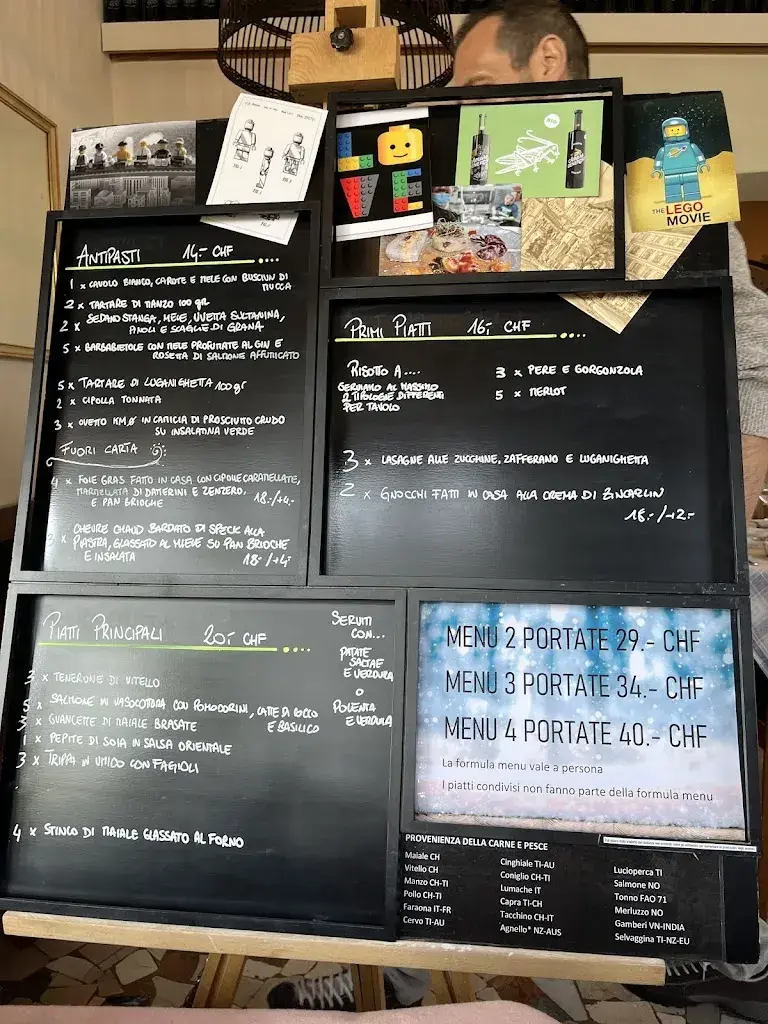 LOVE
THE LEGO
MOVIE
ANTIPASTI 14.- CHF
1 x CAVOLO BIANCO, CAROTE E MELE CON BUSCIUN DI
MUCCA
2 x TARTARE DI MANZO 100 gr
2 x SEDANO STANGA, MELE, UVETTA SULTANINA,
ANOLI E SCAGLIE DI GRANA
5 x BARBABIETOLE CON MELE PROFUMATE AL GIN E
ROSETTA DI SALMONE AFFUMICATO
5 x TARTARE DI LUGANIGHETTA 100gr
2 x CIPOLLA TONNATA
3 x OVETTO KM.0 IN CAMICIA DI PROSCIUTTO CRUDO
SU INSALATINA VERDE
FUORI CARTA
4 x FOIE GRAS FATTO IN CASA CON CIPOLLE CARAMELLATE,
MARMELLATA DI DATTERINI E ZENZERO,
E PAN BRIOCHE 18.-/+4.-
CHEVRE CHAUD BARDATO DI SPECK ALLA
PIASTRA, GLASSATO AL MIELE SU PAN BRIOCHE
E INSALATA 18.-/+4.-
PRIMI PIATTI 16.- CHF
RISOTTO A....
GERMANO AL MASSIMO
2 TIPOLOGIE DIFFERENTI
PER TAVOLO
3 x PERE E GORGONZOLA
5 x MERLOT
3 x LASAGNE ALLE ZUCCHINE, ZAFFERANO E LUGANIGHETTA
2 x GNOCCHI FATTI IN CASA ALLA CREMA DI ZINCARLIN
18.-/+2.-
PIATTI PRINCIPALI 20.- CHF
3 x TENERONE DI VITELLO
5 x SALMONE IN VASOCOTTURA CON POMODORINI, LATTE DI COCCO
E BASILICO
3 x GUANCETTE DI MAIALE BRASATE
1 x PEPITE DI SOIA IN SALSA ORIENTALE
3 x TRIPPA IN UMIDO CON FAGIOLI
4 x STINCO DI MAIALE GLASSATO AL FORNO
SERVITI
CON...
PATATE
SALTAE
E VERDURA
O
POLENTA
E VERDURA
MENU 2 PORTATE 29.- CHF
MENU 3 PORTATE 34.- CHF
MENU 4 PORTATE 40.- CHF
La formula menu vale a persona
I piatti condivisi non fanno parte della formula menu
PROVENIENZA DELLA CARNE E PESCE
Maiale CH
Vitello CH
Manzo CH-TI
Pollo CH-TI
Faraona IT-FR
Cervo TI-AU
Cinghiale TI-AU
Coniglio CH-TI
Lumache IT
Capra TI-CH
Tacchino CH-IT
Agnello* NZ-AUS
Lucioperca TI
Salmone NO
Tonno FAO 71
Merluzzo NO
Gamberi VN-INDIA
Selvaggina TI-NZ-EU